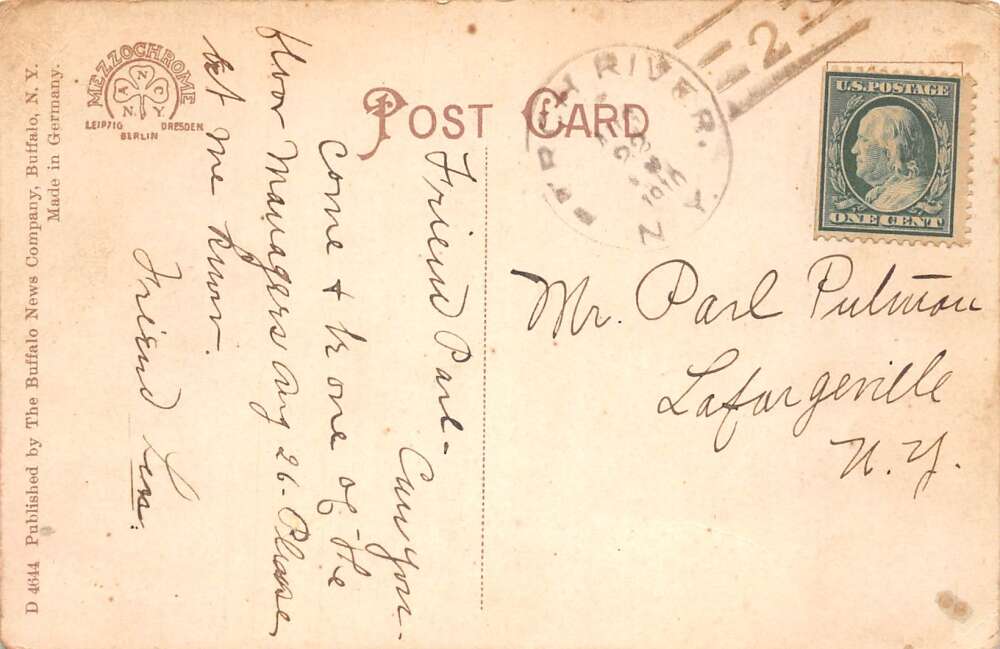 D 4644 Published by The Buffalo News Company, Buffalo, N. Y.
Made in Germany.
MEZZOCHROME
N
A C
N.Y.
LEIPZIG DRESDEN
BERLIN
POST CARD
PERCH RIVER. N.Y.
2
U.S. POSTAGE
ONE CENT
Friend Parl-
Can you
come & be one of the
floor Managers Aug 26- Please
let me know.
Friend Len.
Mr. Parl Putman
Lafargeville
N.Y.